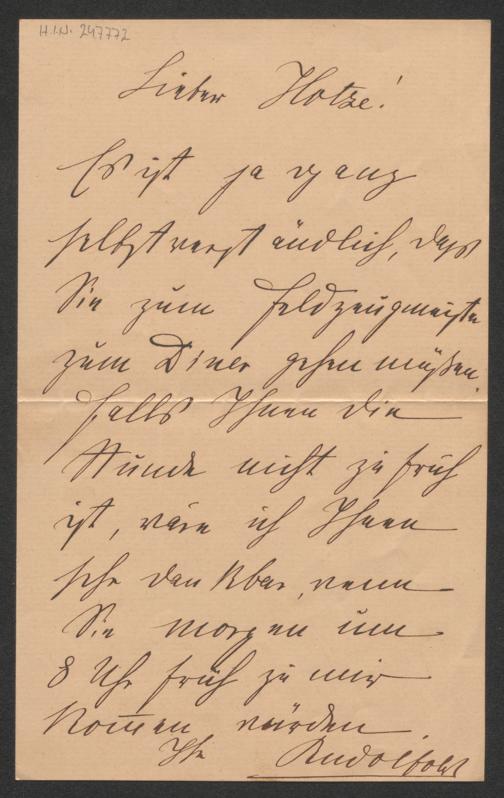 H.I.N. 247772
Lieber Hotze!
Es ist ja ganz
selbstverständlich, dass
Sie zum Feldzeugmeister
zum Diner gehen müßen.
Falls Ihnen die
Stunde nicht zu früh
ist, wäre ich Ihnen
sehr dankbar, wenn
Sie morgen um
8 Uhr früh zu mir
kom̄en würden.
Ihr